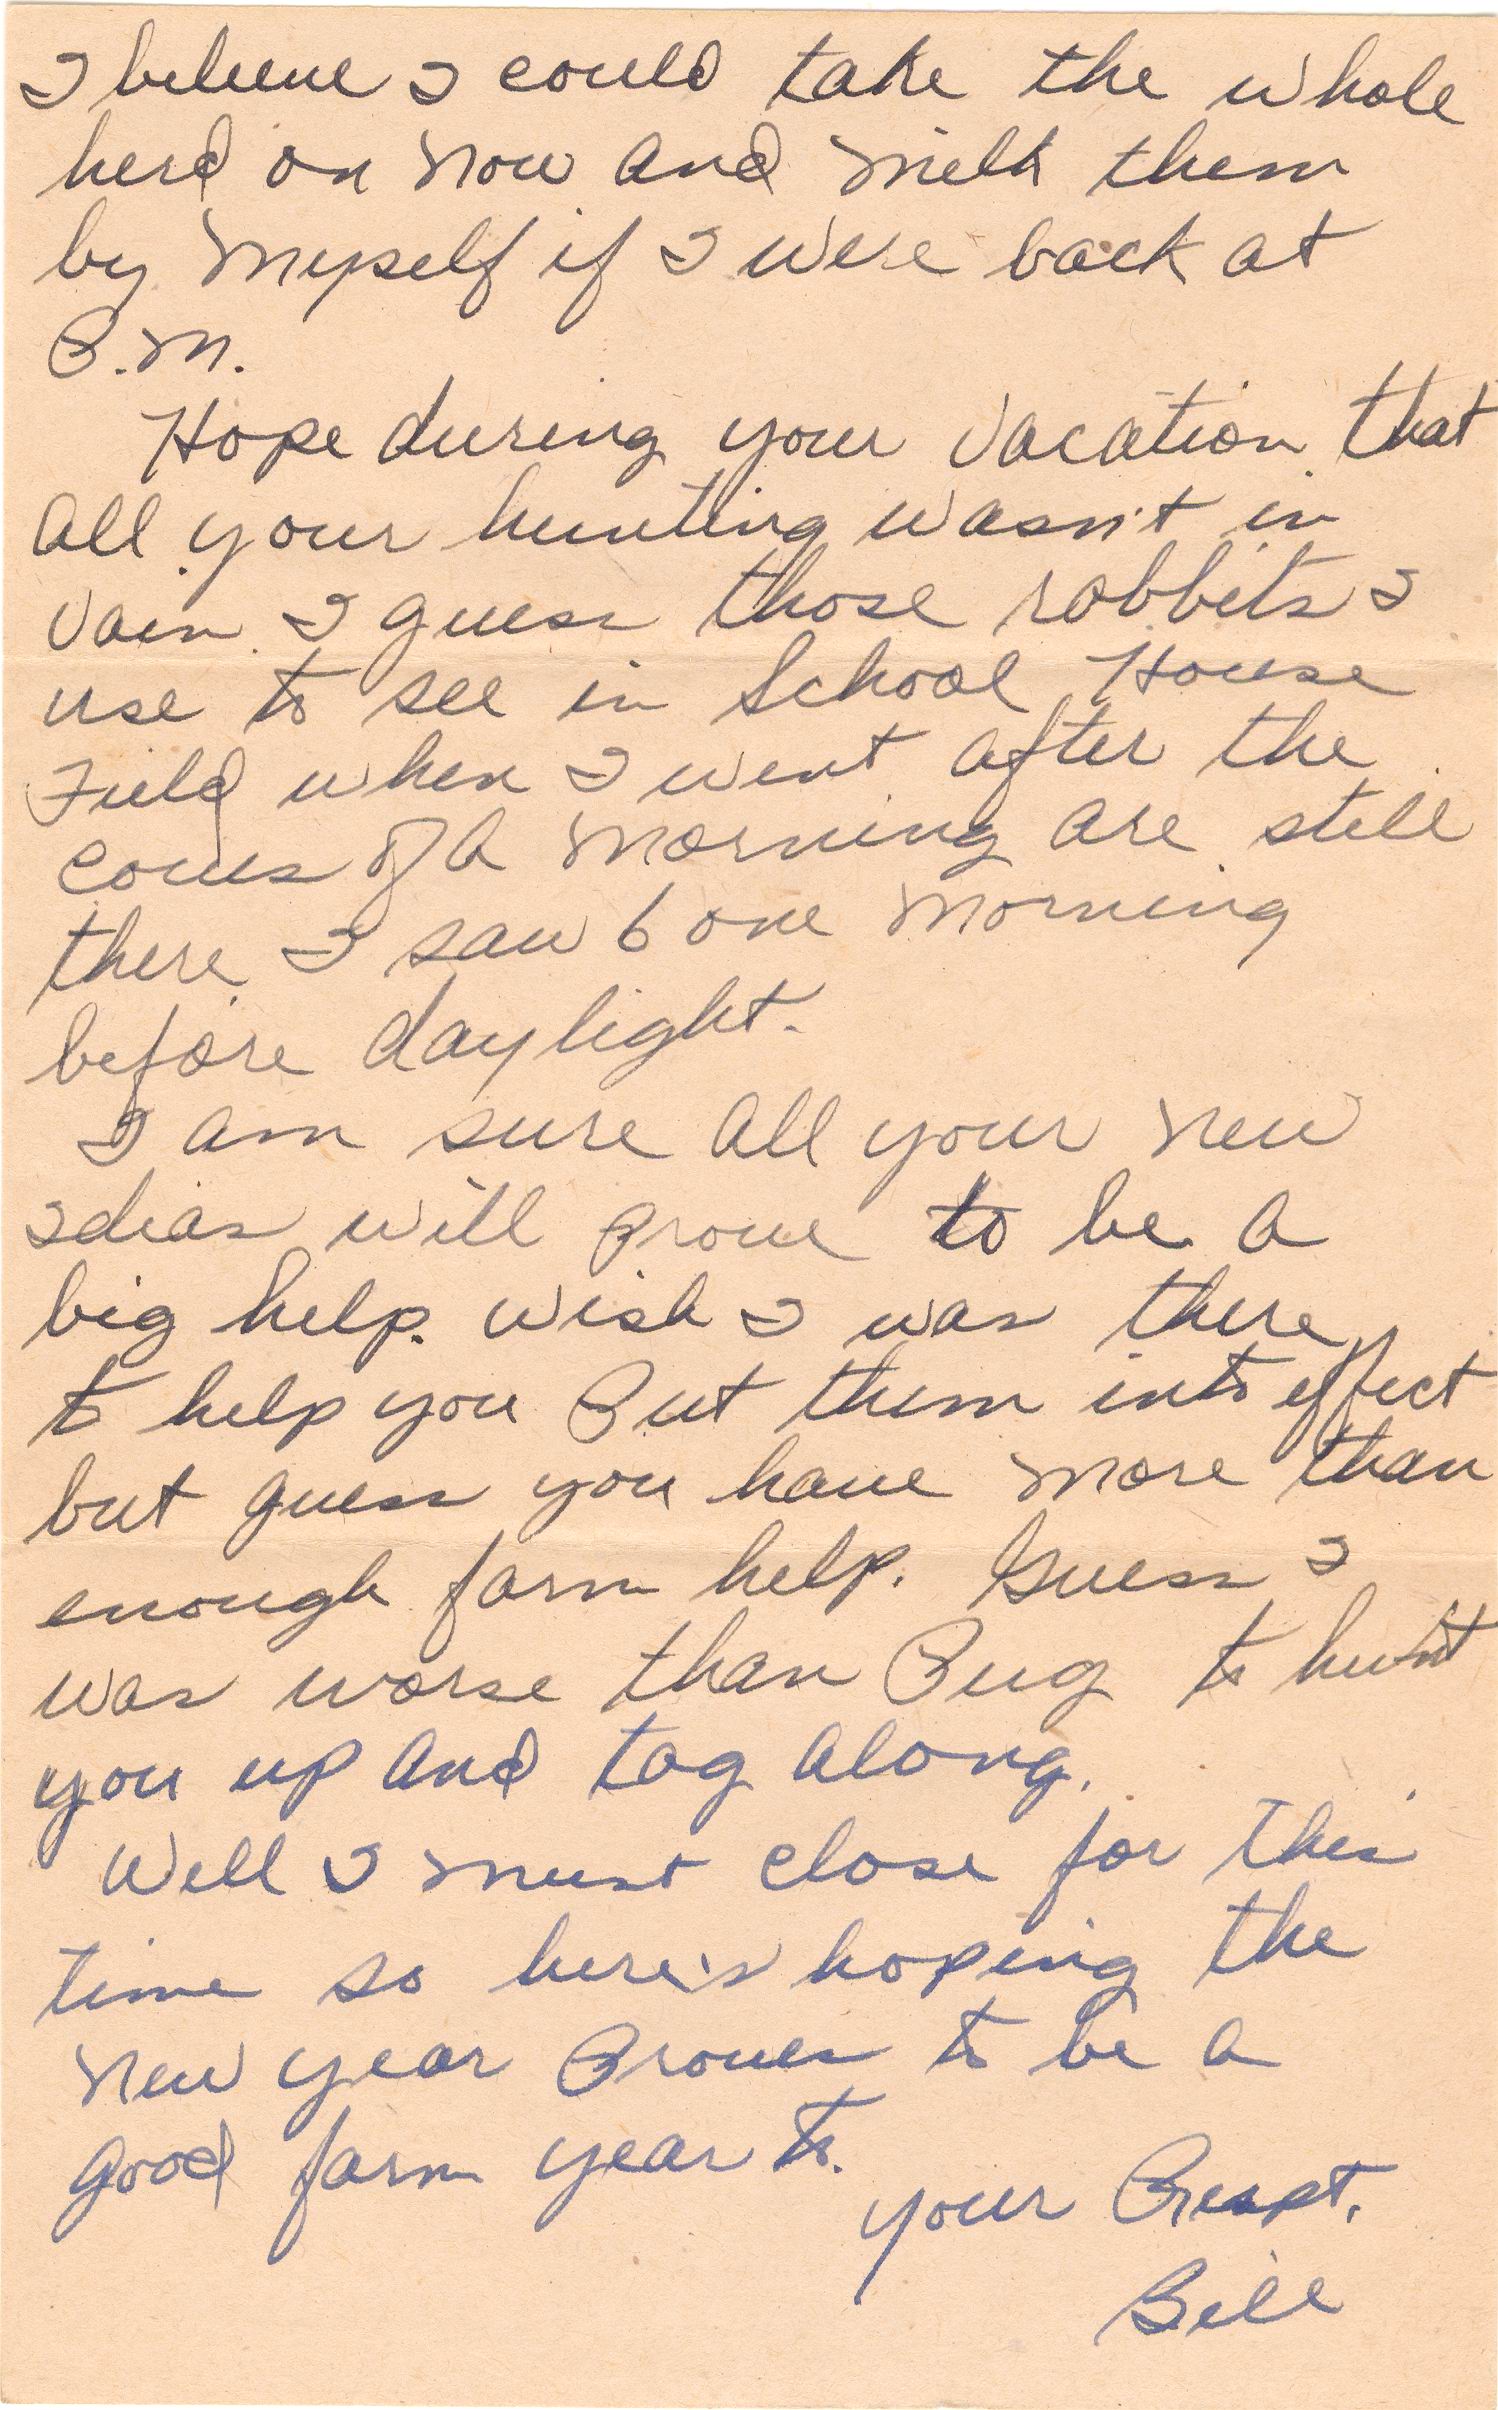 I believe I could take the whole
herd on now and milk them
by myself if I were back at
P.M.
Hope during your vacation that
all your hunting wasn't in
vain. I guess those rabbits I
use to see in School House
Field when I went after the
cows of a morning are still
there. I saw 6 one morning
before daylight.
I am sure all your new
Ideas will prove to be a
big help. wish I was there
to help you Put them into effect
but guess you have more than
enough farm help. Guess I
was worse than Pug to hunt
you up and tag along.
Well I must close for this
time so here's hoping the
new year Proves to be a
good farm year to.
your
Bill